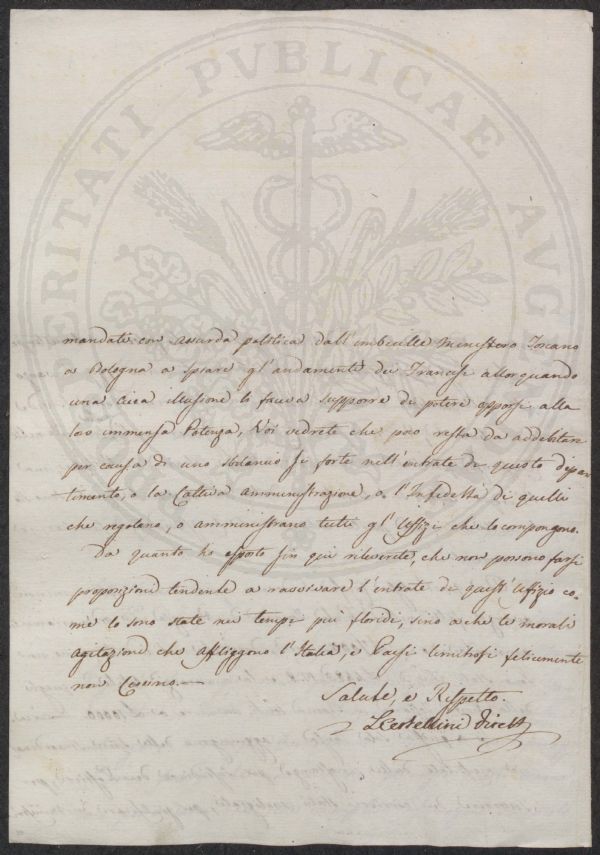 PROSPERITATI PVBLICAE AVGENDAE
mandati con assurda politica dall'imbecille Ministero Toscano
a Bologna a spiare gl'andamenti dei Francesi allorquando
una cieca illusione lo faceva supporre di potere opporsi alla
loro immensa Potenza, Voi vedrete che poco resta da addebitare
per causa di uno sbilancio sì forte nell'entrate di questo dipar
timento, o la Cattiva amministrazione, o l'Infedeltà di quelli
che regolano, o amministrano tutti gl'Uffizi che lo compongono.
Da quanto ho esposto fin qui rileverete, che non possono farsi
proposizioni tendenti a ravvivare l'entrate di quest'Uffizio co=
me lo sono state nei tempi più floridi, sino a che le morali
agitazioni che affliggono l'Italia, e Paesi limitrofi felicemente
non Cessino.—
Salute, e Rispetto.